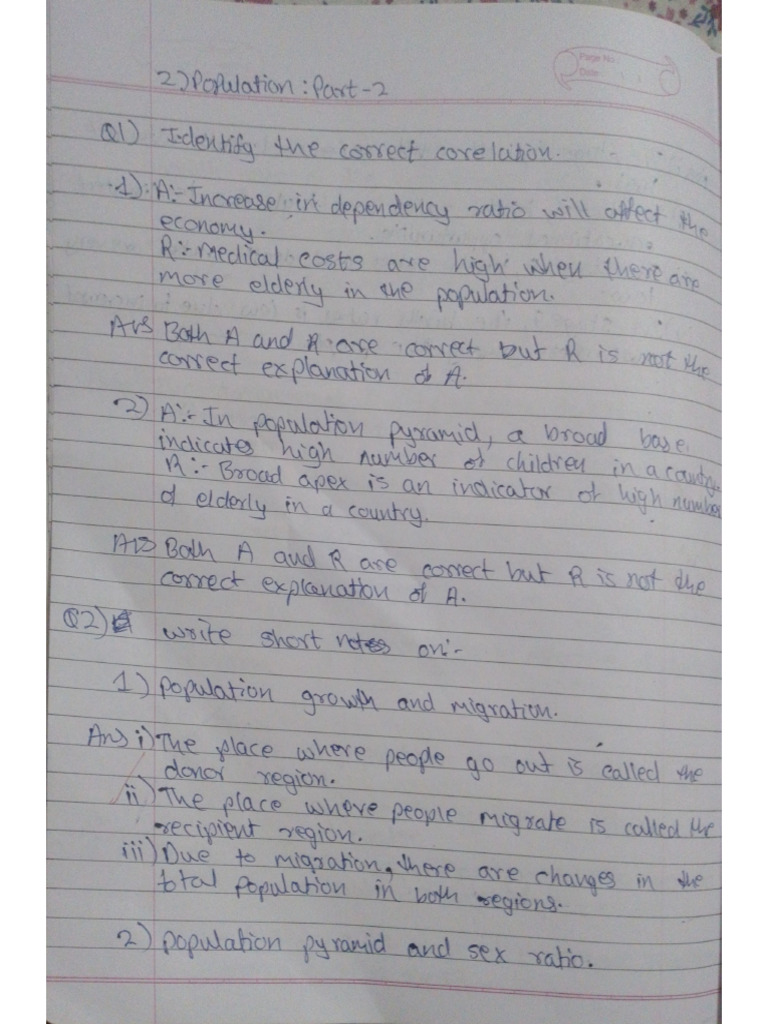 Page No.
Date
2) Population : Part - 2
Q1) Identify the correct corelation.
1) A:- Increase in dependency ratio will affect the
economy.
R:- Medical costs are high when there are
more elderly in the population.
Ans Both A and R are correct but R is not the
correct explanation of A.
2) A:- In population pyramid, a broad base
indicates high number of children in a country.
R:- Broad apex is an indicator of high number
of elderly in a country.
Ans Both A and R are correct but R is not the
correct explanation of A.
Q2) write short notes on:-
1) Population growth and migration.
Ans i) The place where people go out is called the
donor region.
ii) The place where people migrate is called the
recipient region.
iii) Due to migration, there are changes in the
total population in both regions.
2) Population pyramid and sex ratio.